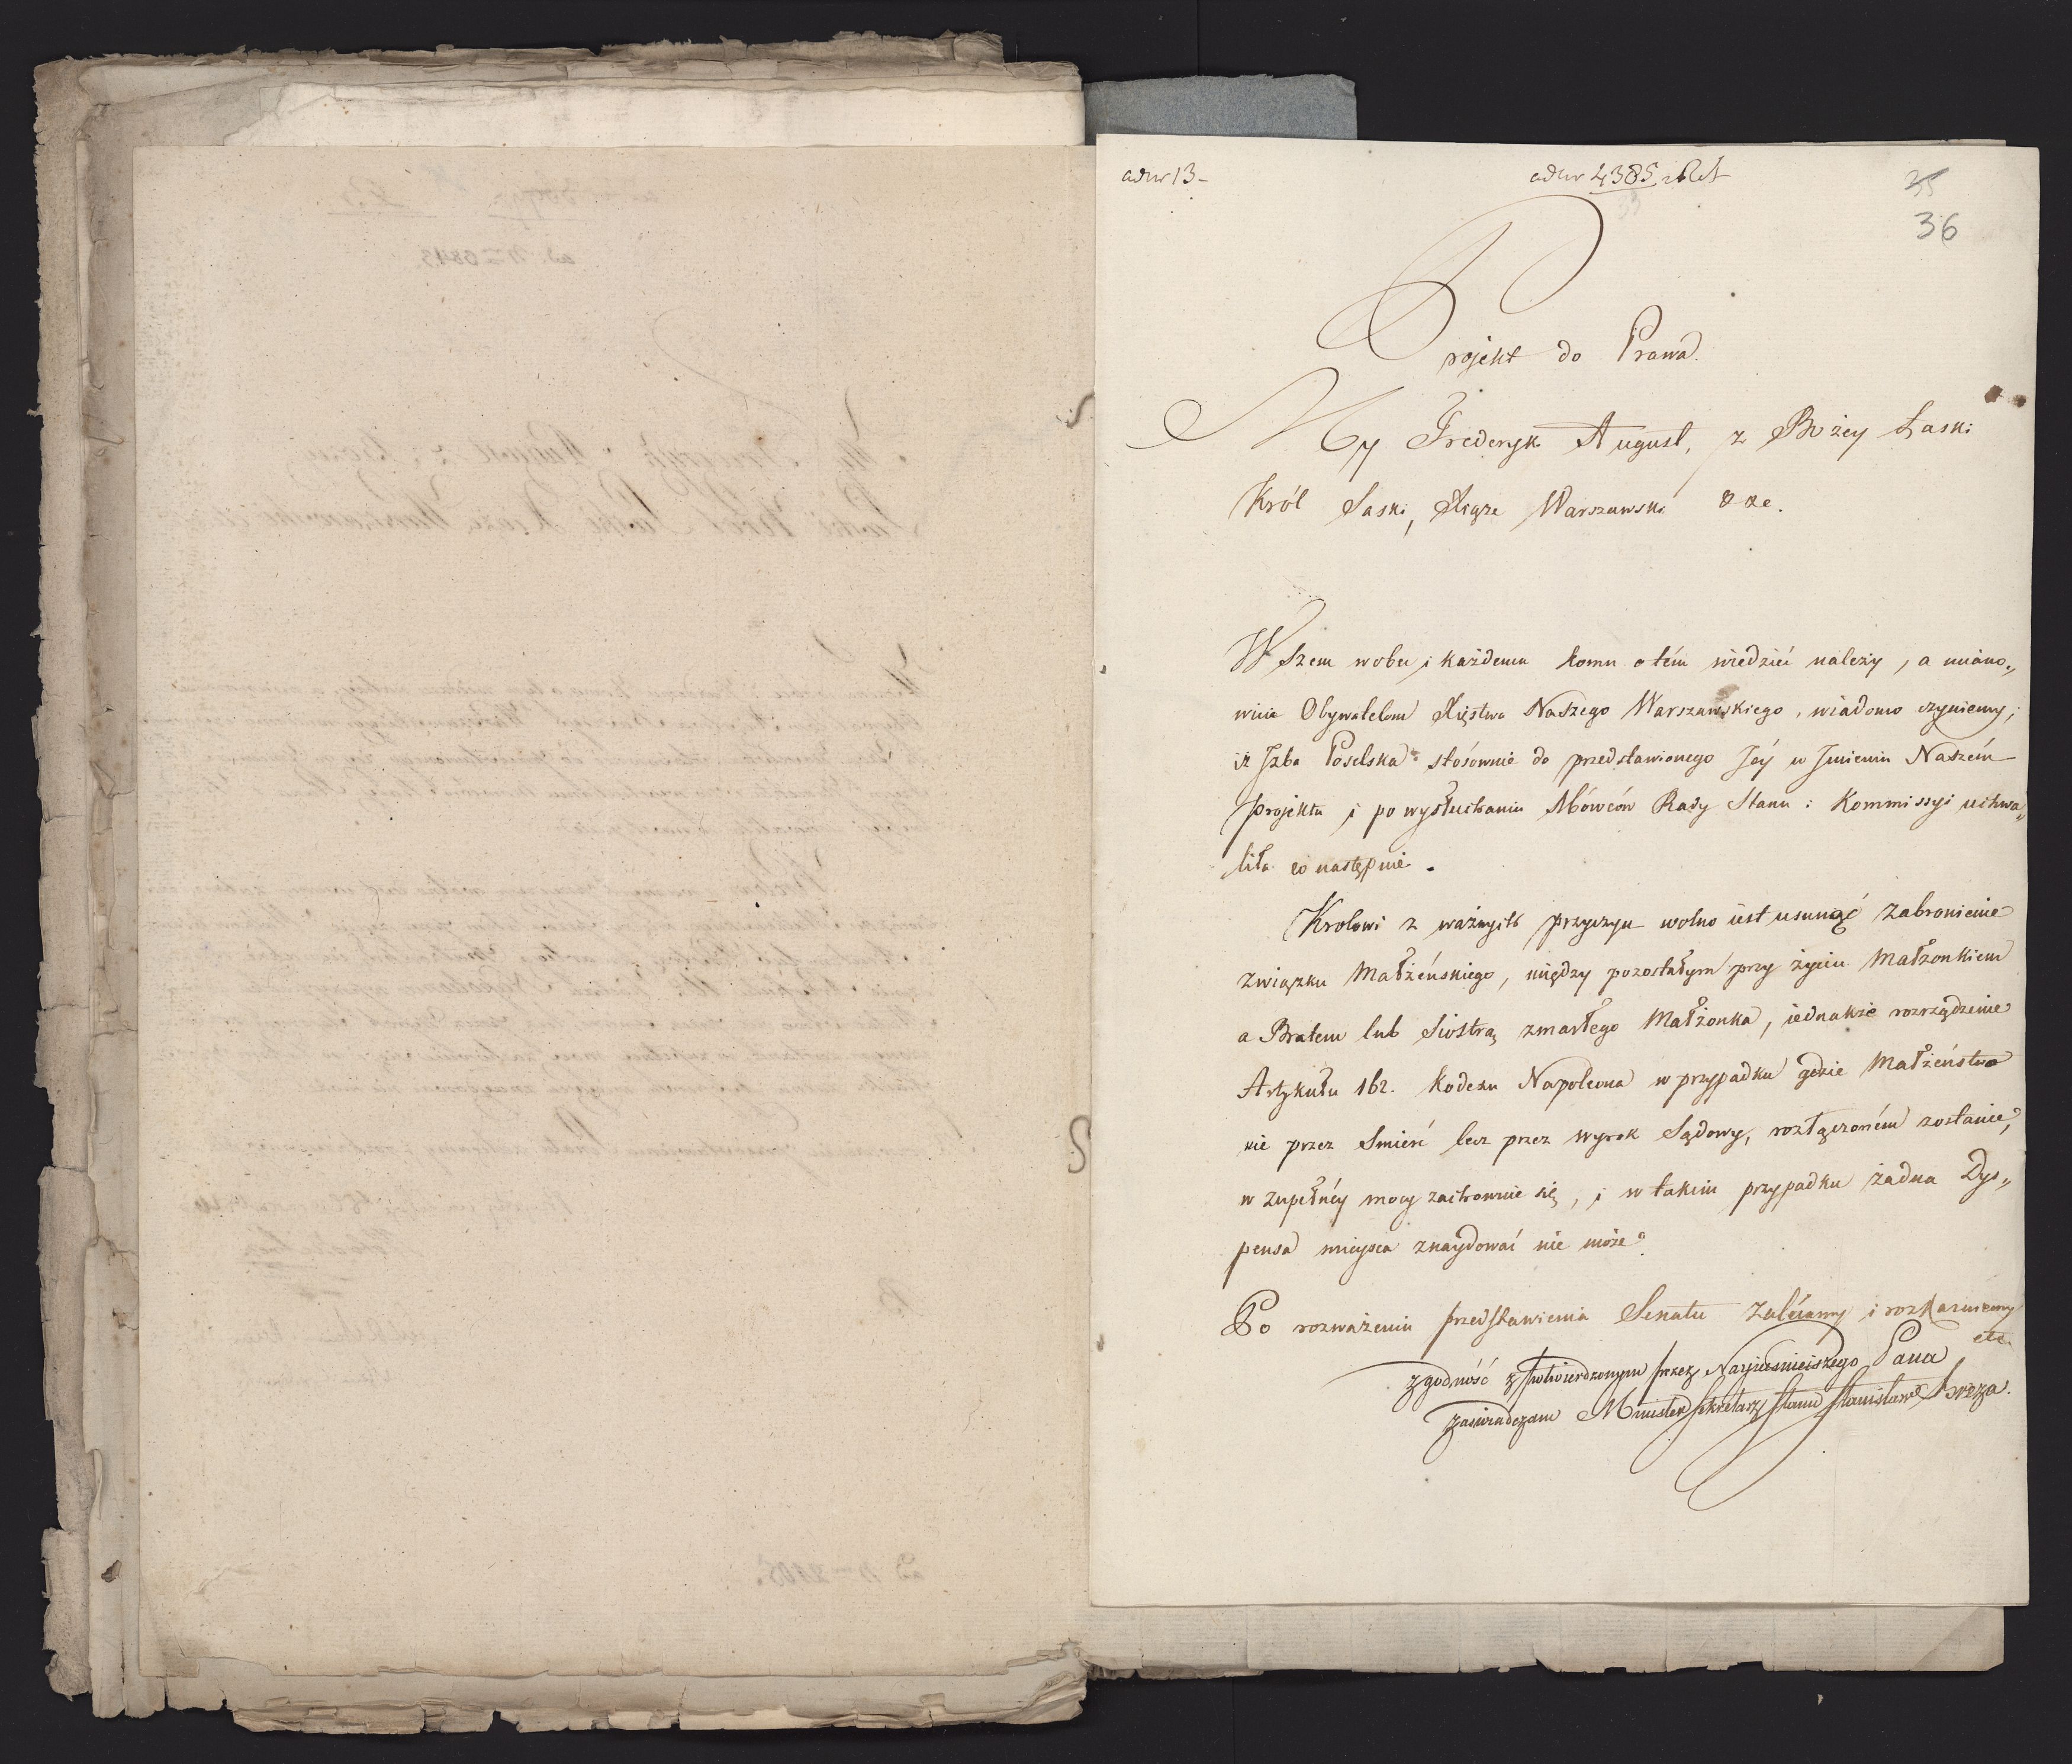 ad nr 13 -
ad nr 4385
35
36
Projekt do Prawa.
My Frederyk August, z Bożey Łaski
Król Saski, Xiąże Warszawski &ze.
Wszem wobec i każdemu komu o tém wiedzieć należy, a miano„
wicie Obywatelom Xięstwa Naszego Warszawskiego, wiadomo czyniemy,
iż Jzba Poselska stósownie do przedstawionego Jéy w Jmieniu Naszém
projektu i po wysłuchaniu Mówców Rady Stanu i Kommissyi uchwa„
liła co następuie.
Krolowi z ważnych przyczyn wolno iest usunąć zabronienie
związku Małżeńskiego, między pozostałym przy życiu Małzonkiem
a Bratem lub Siostrą zmarłego Małżonka, iednakże rozrządzenie
Artykułu 162. Kodexu Napoleona w przypadku gdzie Małżeństwo
nie przez Smierć lecz przez wyrok Sądowy, rozłączoném zostanie,
w zupełnéy mocy zachowuie się, i w takim przypadku żadna Dys„
pensa mieysca znaydować nie może.
Po rozważeniu przedstawienia Senatu zalécamy i rozkazuiemy
etc.
zgodność z potwierdzonym przez Nayiaśnieiszego Pana
zaświadczam Minister Sekretarz Stanu Stanisław Breza.